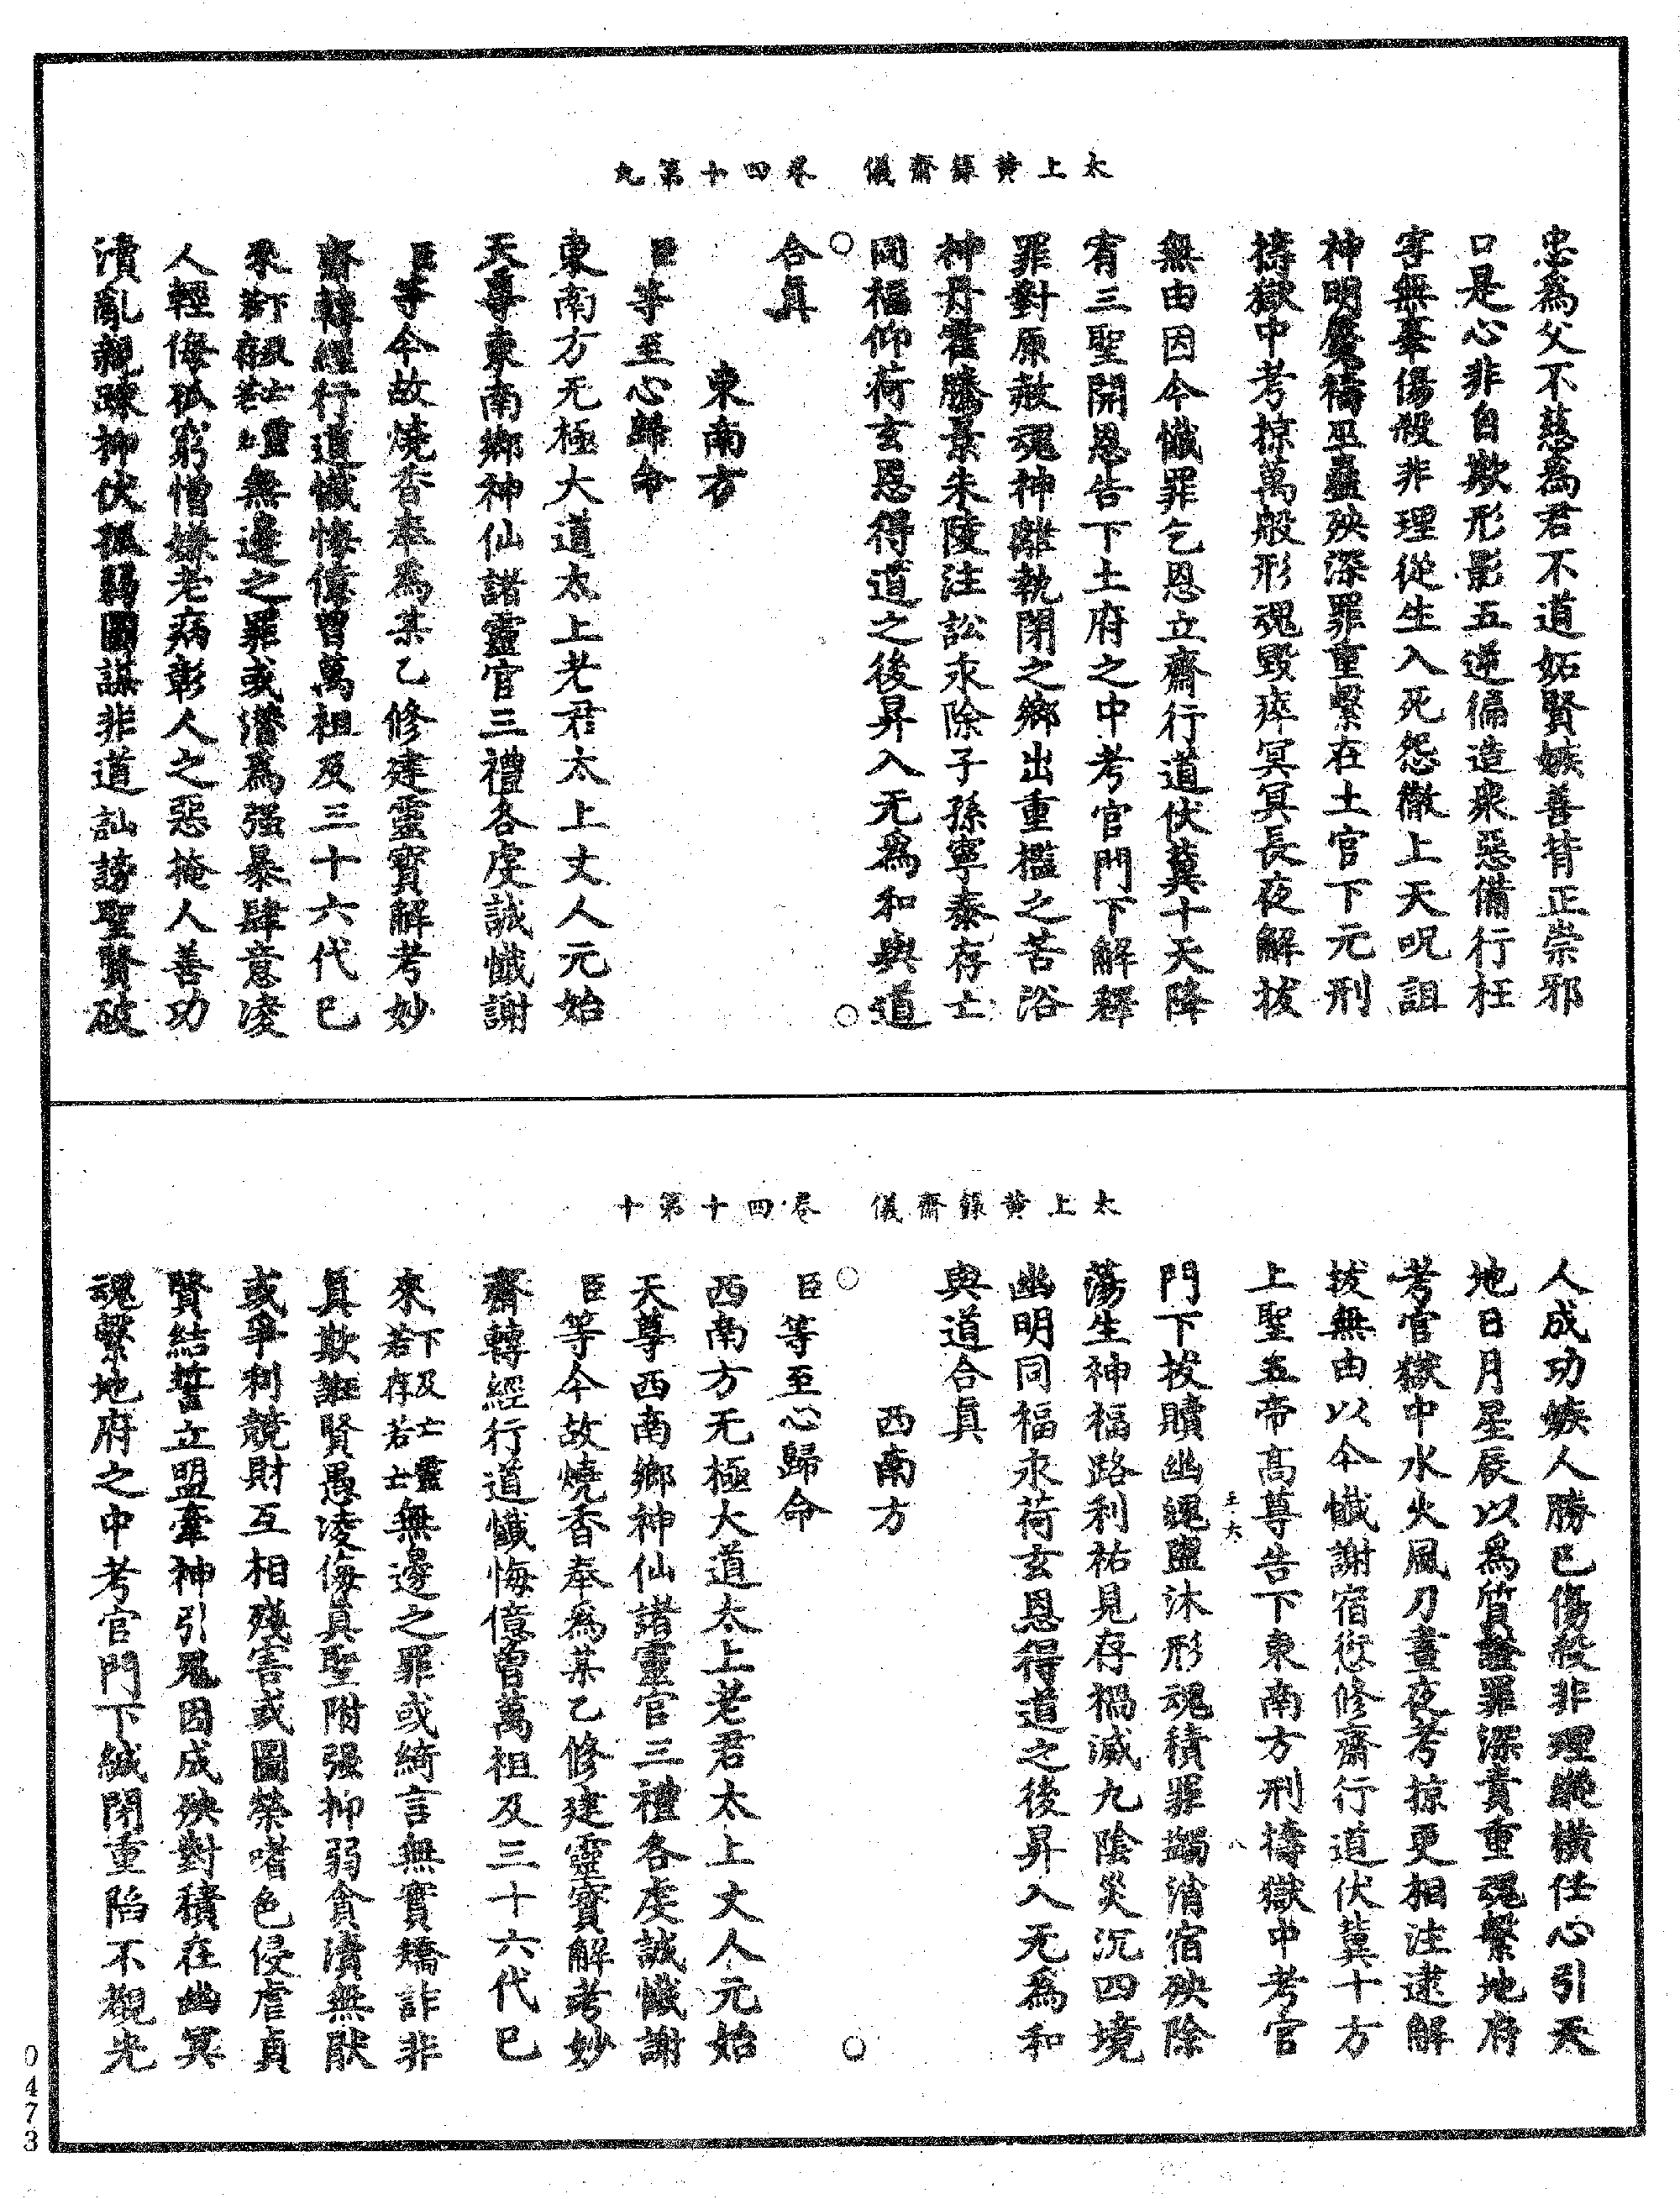 太上黃籙齋儀　卷四十　第九
忠為父不慈為君不道妬賢嫉善背正崇邪
口是心非自欺形影五逆徧造衆惡備行枉
害無辜傷殺非理從生入死怨徹上天呪詛
神明魘禱巫蠱殃深罪重繫在土官下元刑
擣獄中考掠萬般形魂毀瘁冥冥長夜解拔
無由因今懺罪乞恩立齋行道伏冀十天降
有三聖開恩告下土府之中考官門下解釋
罪對原赦魂神離執閉之鄉出重檻之苦浴
神丹霍騰景朱陵注訟永除子孫寧泰存亡
同福仰荷玄恩得道之後昇入无為和與道
合真
東南方
臣等至心歸命
東南方无極大道太上老君太上丈人元始
天尊東南鄉神仙諸靈官三禮各虔誠懺謝
臣等今故燒香奉為某乙修建靈寶解考妙
齋轉經行道懺悔億曾萬祖及三十六代已
來下及亡靈若存若亡無邊之罪或濳為强暴肆意凌
人輕侮孤窮憎嫌老病彰人之惡掩人善功
瀆亂親踈抑伏孤弱圖謀非道訕謗聖賢破
太上黃籙齋儀　卷四十　第十
人成功嫉人勝已傷殺非理縱橫任心引天
地日月星辰以為質證罪深責重魂繫地府
考官獄中水火風刀晝夜考掠更相注逮解
拔無由以今懺謝宿愆修齋行道伏冀十方
上聖五帝髙尊告下東南方刑擣獄中考官
門下拔贖幽魂盥沐形魂積罪蠲消宿殃除
蕩生神福路利祐見存禍滅九陰災沉四境
幽明同福永荷玄恩得道之後昇入无為和
與道合真
西南方
臣等至心歸命
西南方无極大道太上老君太上丈人元始
天尊西南鄉神仙諸靈官三禮各虔誠懺謝
臣等今故燒香奉為某乙修建靈寶解考妙
齋轉經行道懺悔億曾萬祖及三十六代已
來下及亡靈若存若亡無邊之罪或綺言無實矯詐非
真欺誑賢愚凌侮真聖附强抑弱貪瀆無猒
或爭利競財互相殘害或圖榮嗜色侵虐貞
賢結誓立盟牽神引鬼因成殃對積在幽冥
魂繫地府之中考官門下緘閉重陷不覩光
0473